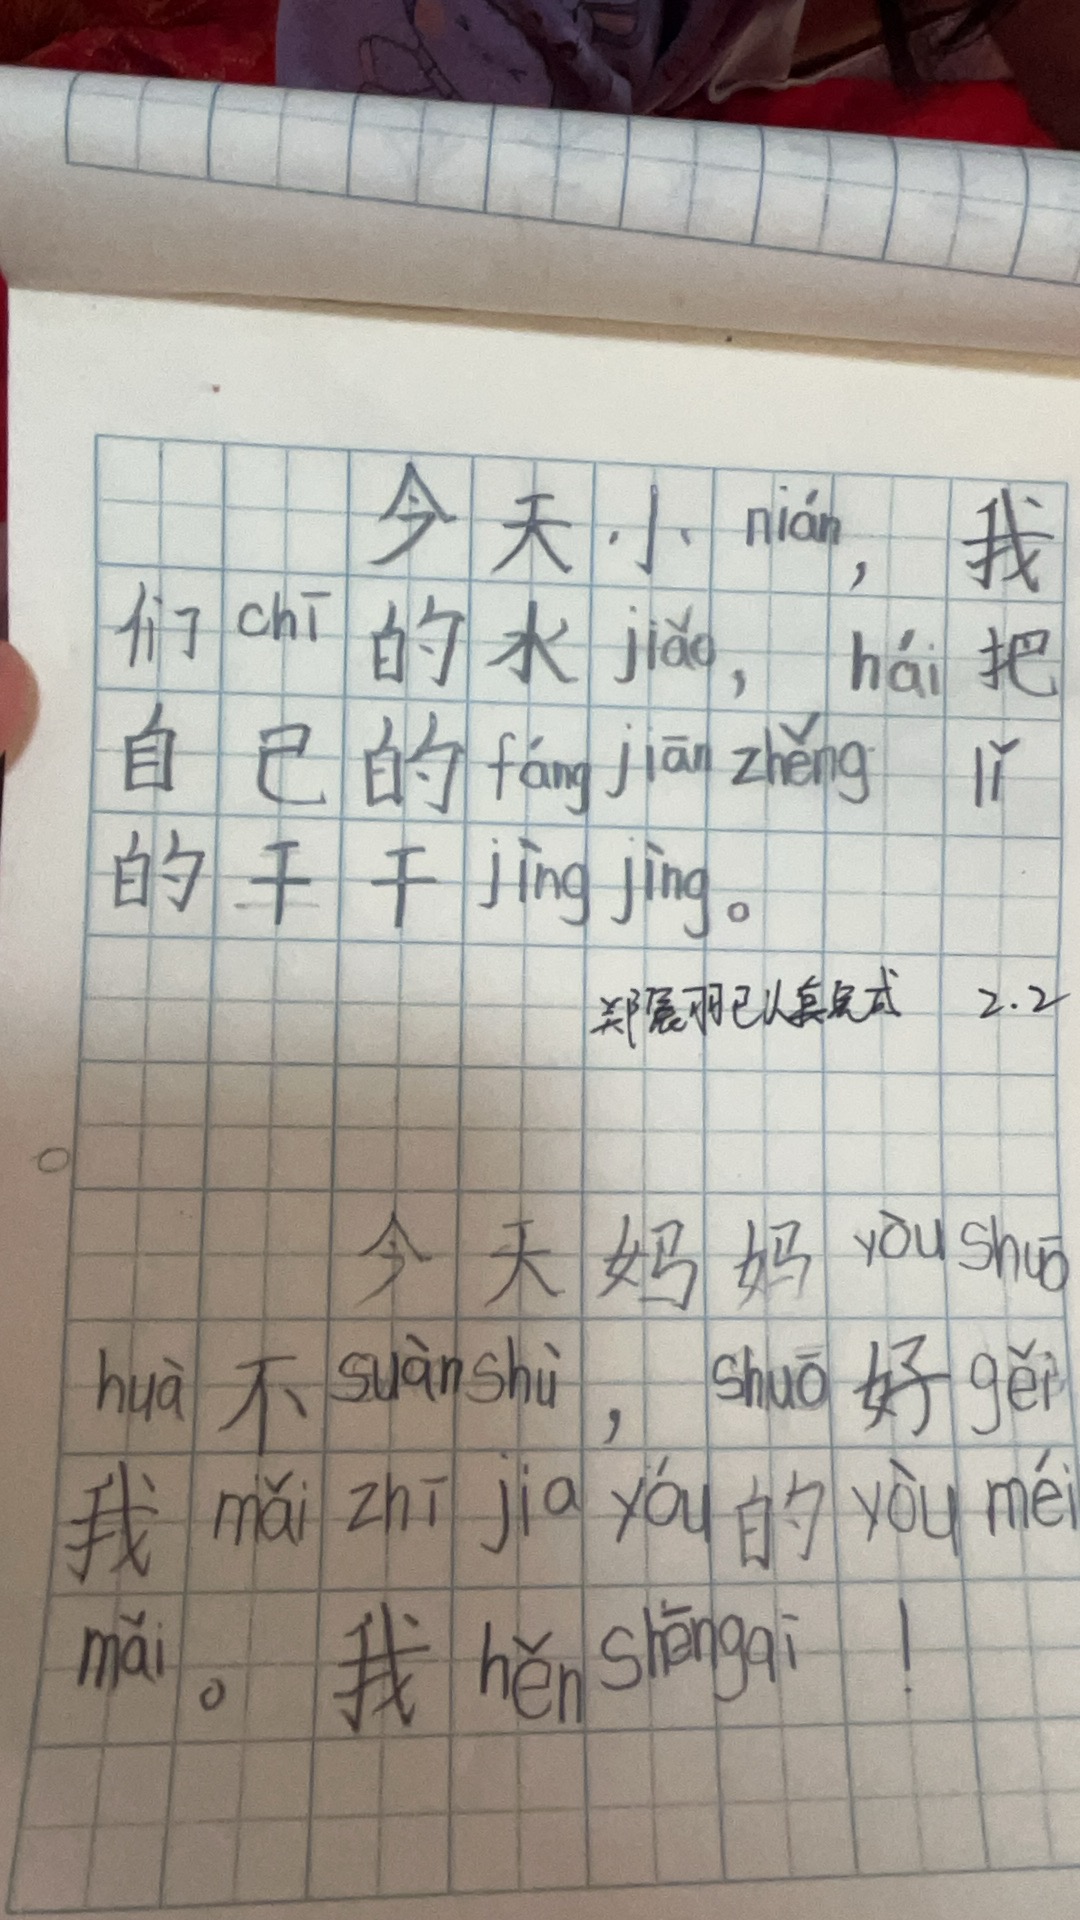 今天小nián，我
们chī的水jiǎo，hái把
自己的fángjiānzhěnglǐ
的干干jìngjìng。
郑宸羽已认真完式 2.2
今天妈妈yòushuō
huà不suànshù，shuō好gěi
我mǎizhījiayóu的yòuméi
mǎi。我hěnshēngqī！